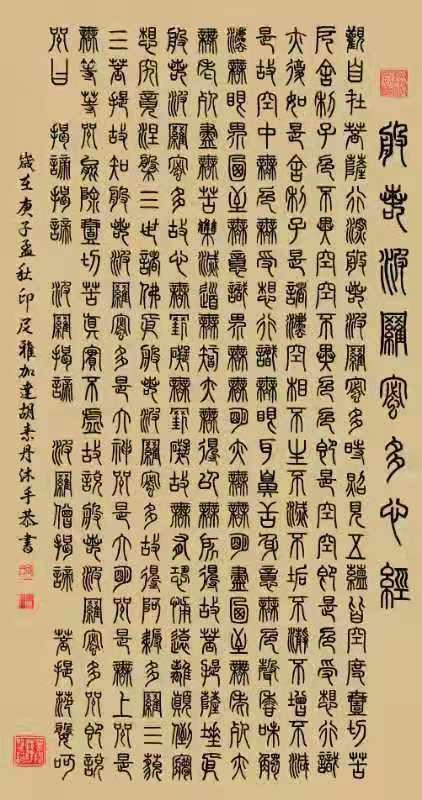 般若波羅蜜多心經
觀自在菩薩行深般若波羅蜜多時照見五蘊皆空度壹切苦
厄舍利子色不異空空不異色色即是空空即是色受想行識
亦復如是舍利子是諸法空相不生不滅不垢不淨不增不減
是故空中無色無受想行識無眼耳鼻舌身意無色聲香味觸
法無眼界乃至無意識界無無明亦無無明盡乃至無老死亦
無老死盡無苦集滅道無智亦無得以無所得故菩提薩埵依
般若波羅蜜多故心無罣礙無罣礙故無有恐怖遠離顛倒夢
想究竟涅槃三世諸佛依般若波羅蜜多故得阿耨多羅三藐
三菩提故知般若波羅蜜多是大神咒是大明咒是無上咒是
無等等咒能除壹切苦真實不虛故說般若波羅蜜多咒即說
咒曰 揭諦揭諦 波羅揭諦 波羅僧揭諦 菩提薩婆訶
歲在庚子孟秋印尼雅加達胡素丹沐手恭書